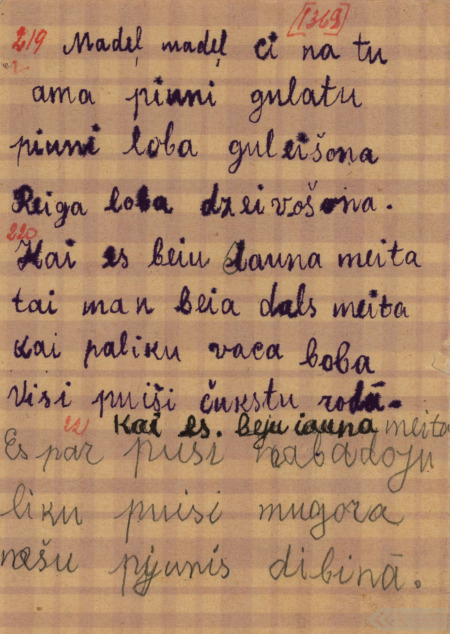 [1369]
219 Madeļ madeļ ci na tu
ama piuni gulatu
piuni loba guleišona
Reiga loba dzeivošona.
220
Kai es beiu Jauna meita
tai man beia dals meita
kai paliku vaca boba
Visi puiši čukstu rodā-
221 Kai es. beju iauna meita
Es par puisi nabādoju
liku puisi mugora
nešu pijunis dibinā.